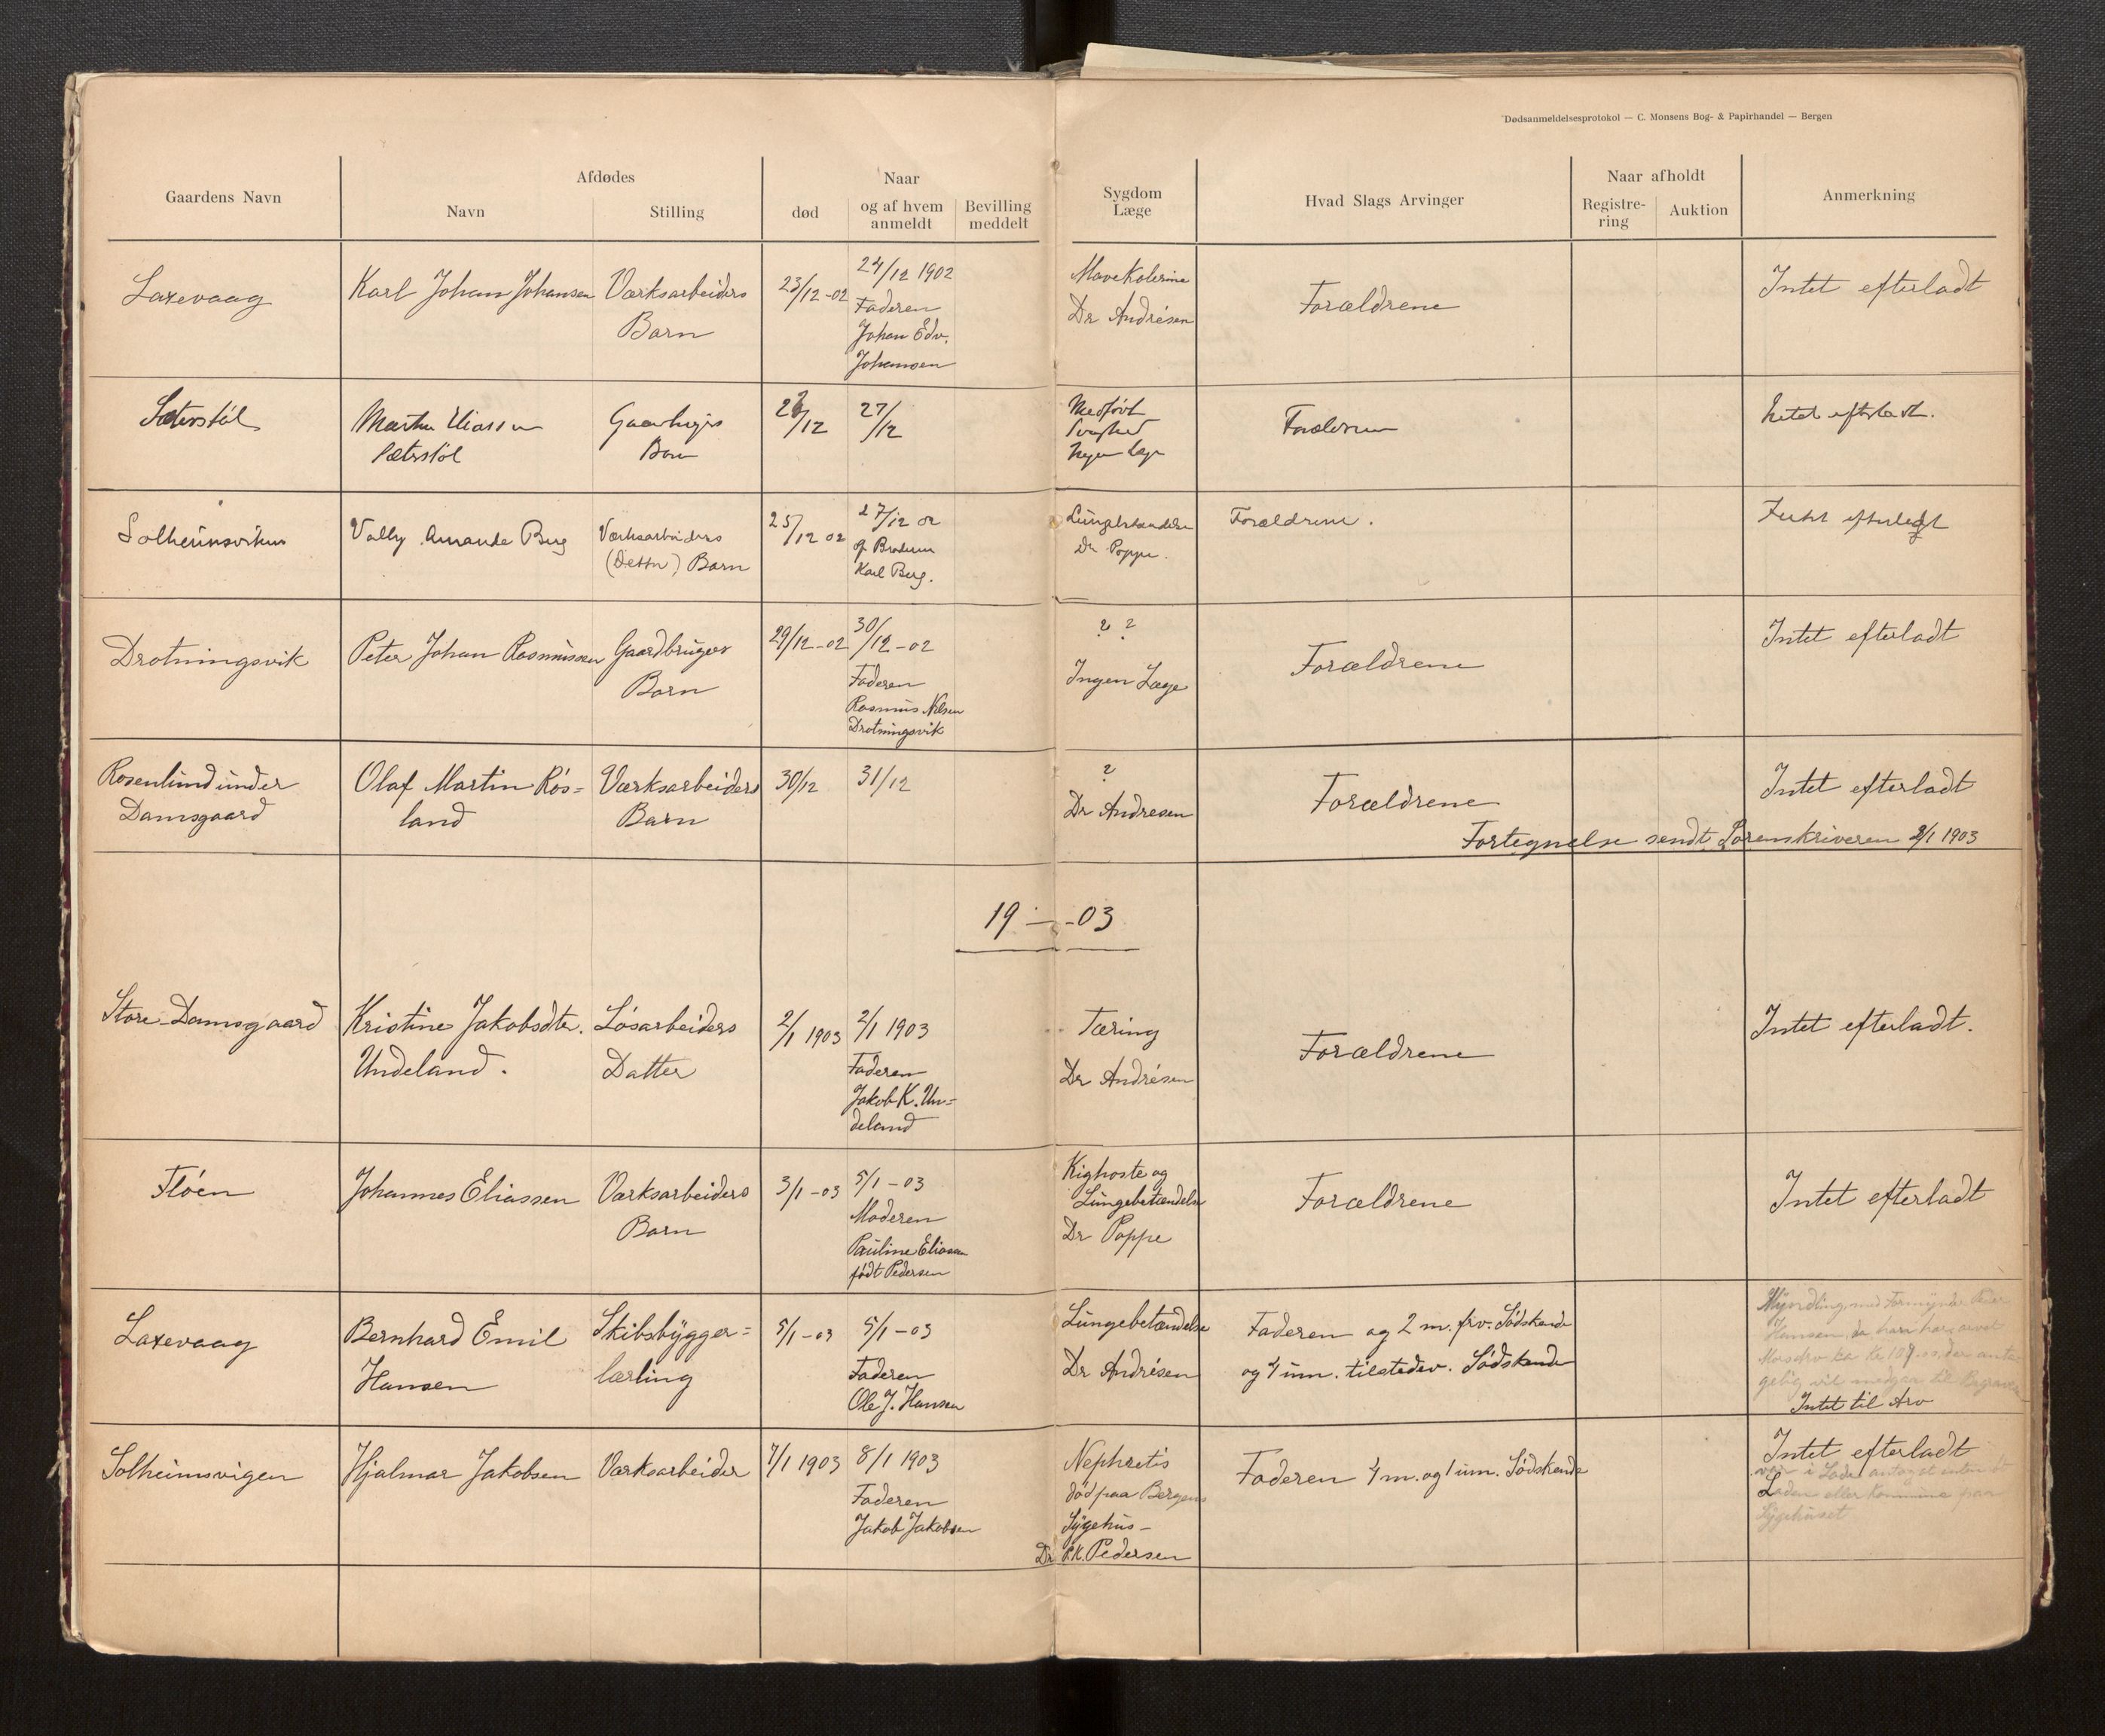 Dødsanmeldelsesprotokol — C. Monsens Bog- & Papirhandel — Bergen
Gaardens Navn
Afdødes
Navn
Stilling
Naar
død
og af hvem
anmeldt
Bevilling
meddelt
Sygdom
Læge
Hvad Slags Arvinger
Naar afholdt
Registre-
ring
Auktion
Anmerkning
Laxevaag
Karl Johan Johansen
Værksarbeiders
Barn
23/12-02
24/12 1902
Faderen
Johan Edv.
Johansen
Mavekolerine
Dr Andrésen
Forældrene
Intet efterladt
Sæterstøl
Martha Eliassen
Sæterstøl
Barn
/12
27/12
Medfødt
Svaghed
Ingen Læge
Forældrene
Intet efterladt.
Solheimsviken
Vally Amanda Berg
Værksarbeiders
Barn
25/12 02
27/12 02
af Broderen
Karl Berg.
Lungebetændelse
Dr Poppe.
Forældrene.
Intet efterladt
Drotningsvik
Peter Johan Rasmussen
Gaardbrugers
Barn
29/12-02
30/12-02
Faderen
Rasmus Nilsen
Drotningsvik
? ?
Ingen Læge
Forældrene
Intet efterladt
Rosenlund under
Damsgaard
Olaf Martin Røs=
land
Værksarbeiders
Barn
30/12
31/12
?
Dr Andresen
Forældrene
Intet efterladt
Fortegnelse sendt Sorenskriveren 2/1 1903
19 — -03
Store-Damsgaard
Kristine Jakobsdtr.
Undeland.
Løsarbeiders
Datter
2/1 1903
2/1 1903
Faderen
Jakob K. Un=
deland
Tæring
Dr Andrésen
Forældrene
Intet efterladt.
Fløen
Johannes Eliassen
Værksarbeiders
Barn
3/1-03
5/1-03
Moderen
Pauline Eliassen
født Pedersen
Kighoste og
Lungebetændelse
Dr Poppe
Forældrene
Intet efterladt
Laxevaag
Bernhard Emil
Hansen
Skibsbygger=
lærling
5/1-03
5/1-03
Faderen
Ole J. Hansen
Lungebetændelse
Dr Andrésen
Faderen og 2 m. frv. Sødskende
og 4 um. tilstedev. Sødskende
Myndling, med Formynder
Hansen, da han har arvet
gelig vil medgaa til Begravelse
Intet til Arv
Solheimsvigen
Hjalmar Jakobsen
Værksarbeider
7/1 1903
8/1 1903
Faderen
Jakob Jakobsen
Nephretis
død paa Bergens
Sygehus-
Dr P.K. Pedersen
Faderen 4 m. og 1 um. Sødskende
Intet efterladt
eller Kommune paa
Sygehuset